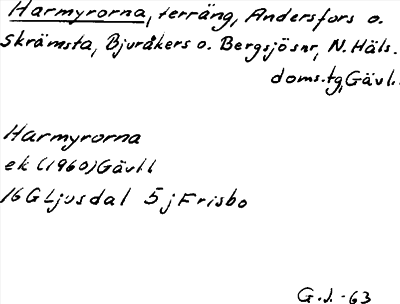 Harmyrorna, terräng, Andersfors o.
Skrämsta, Bjuråkers o. Bergsjösnr, N. Häls.
doms.tg, Gävl.
Harmyrorna
ek (1960) Gävll
16G Ljusdal 5j Frisbo
G.J. -63